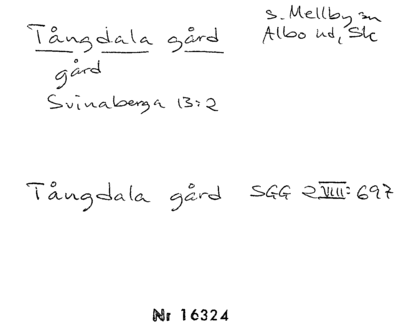 Tångdala gård
S. Mellby sn
Albo hd, Sk
gård
Svinaberga 13:2
Tångdala gård SGG 2 VIII: 697
Nr 16324